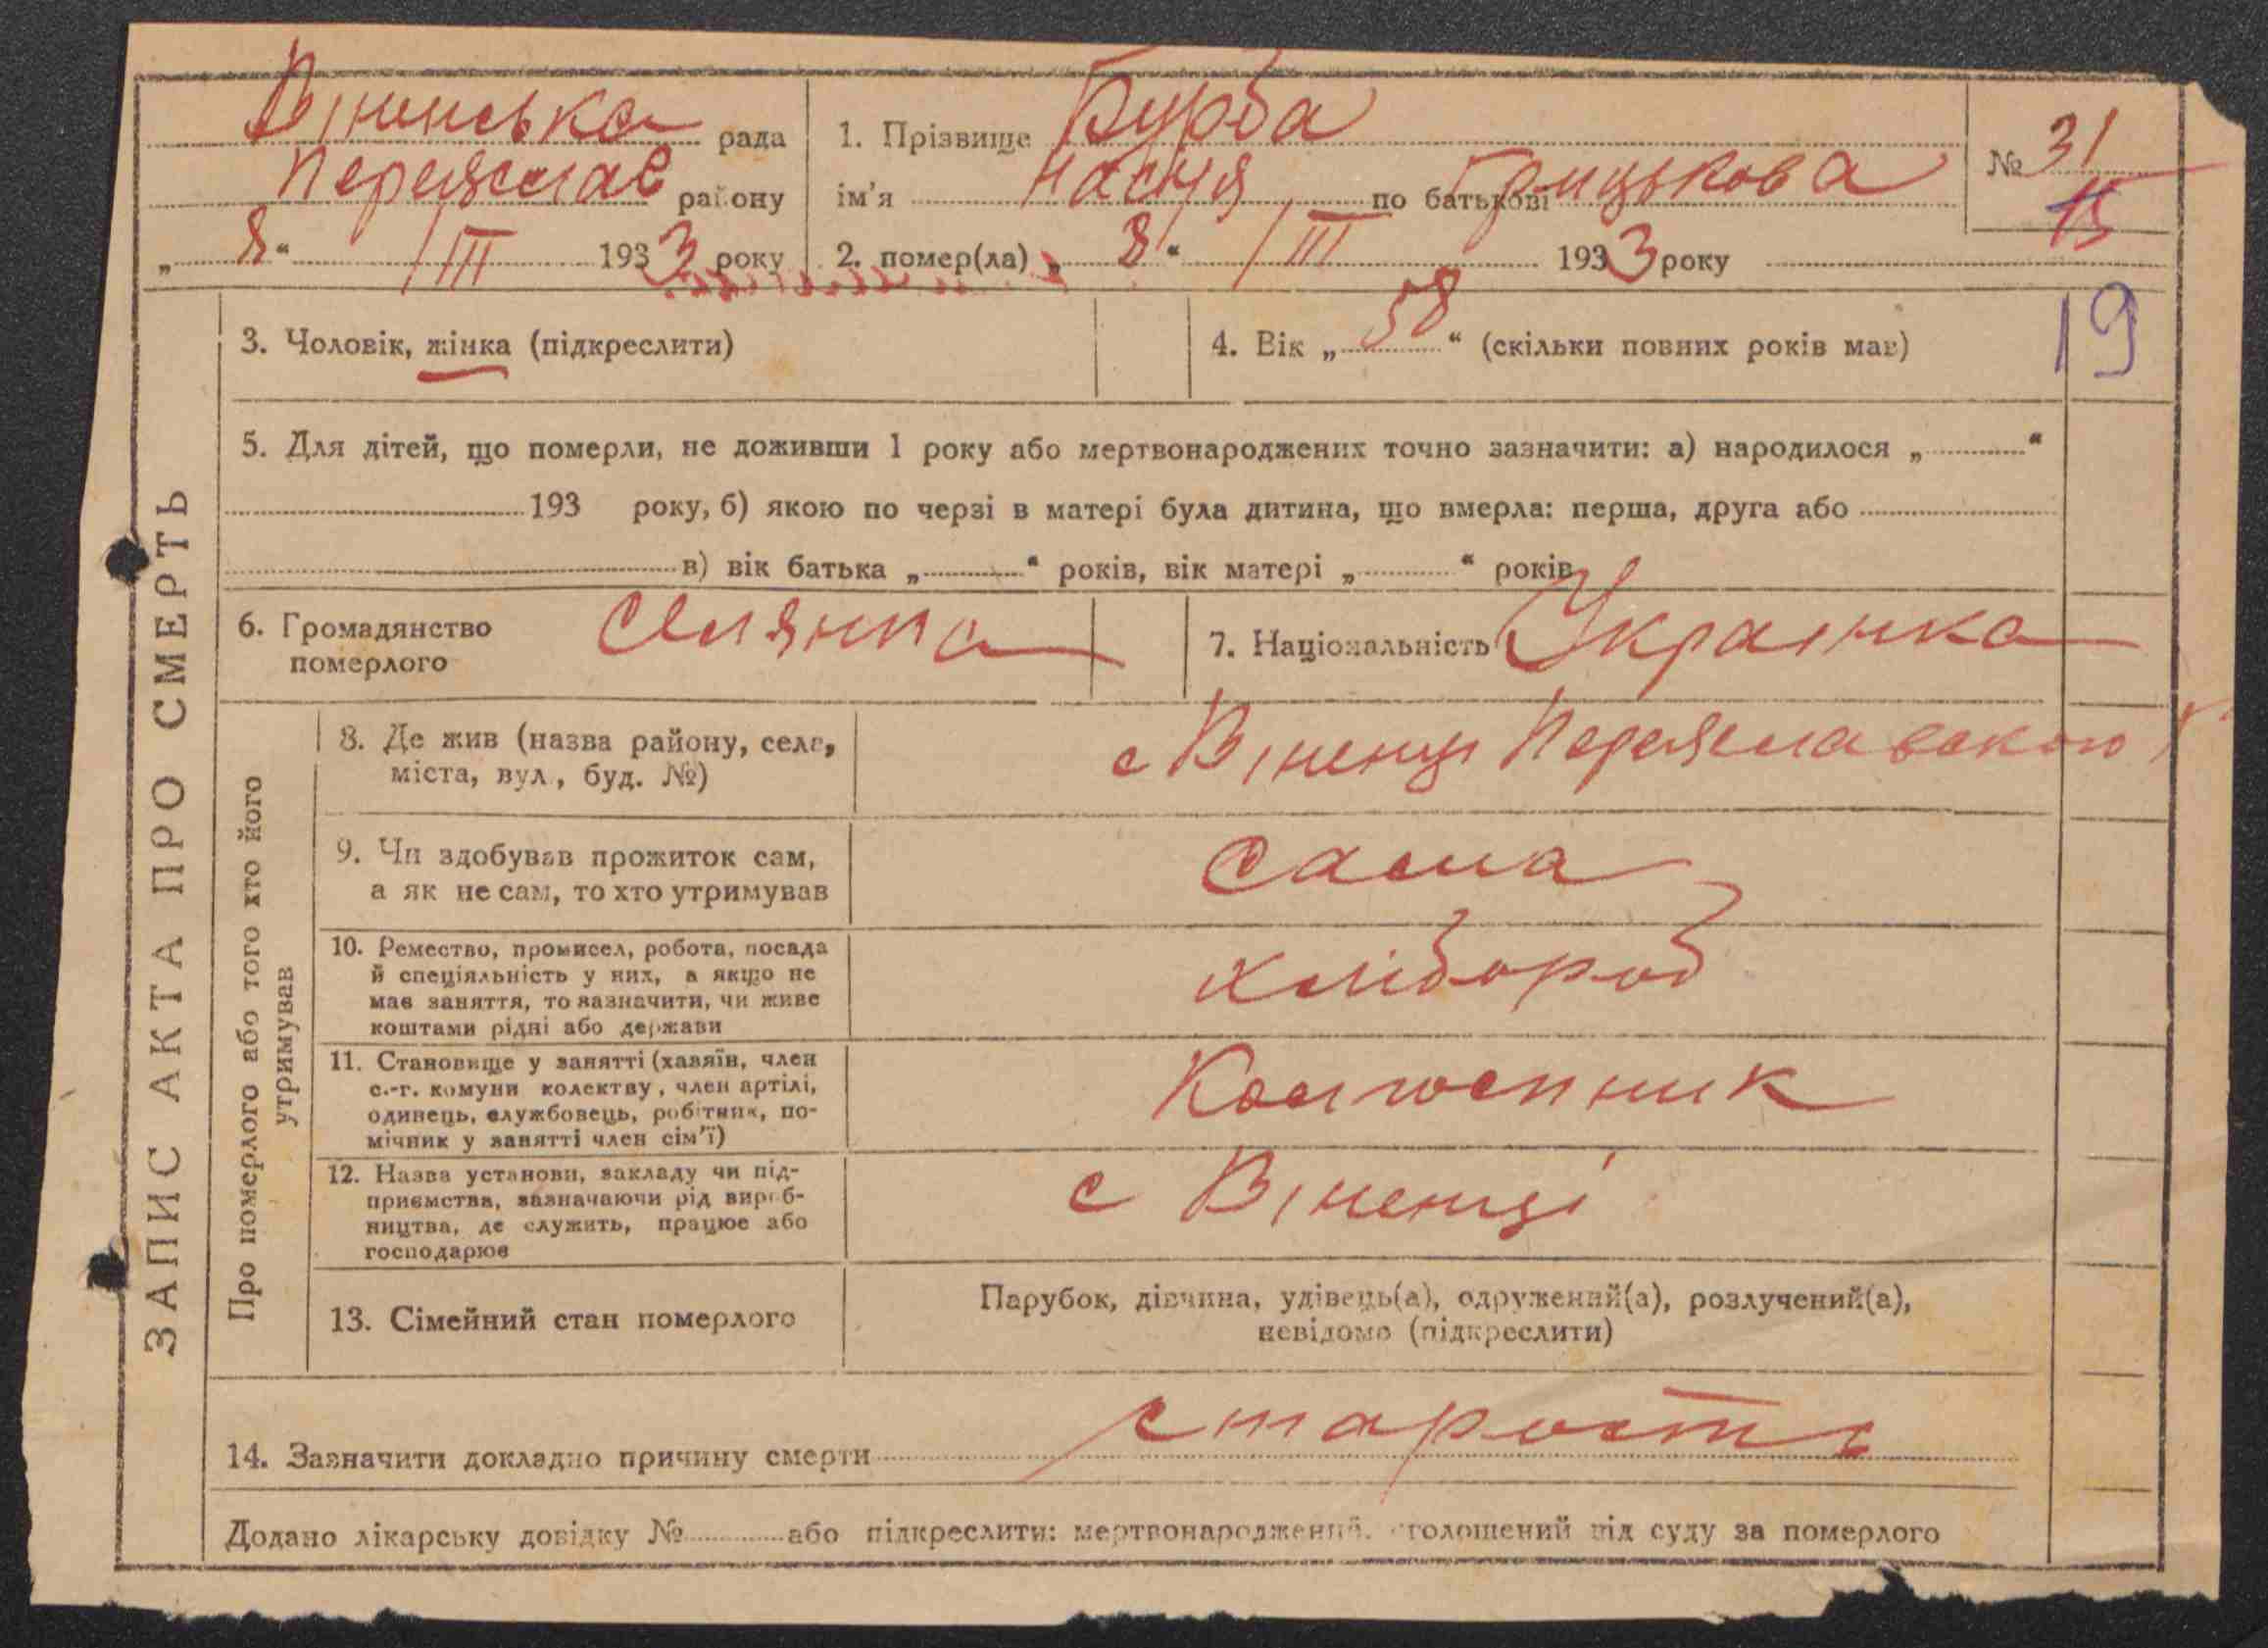 Віненська рада
Переяслав району
„ 8 “ /III 1933 року
1. Прізвище Бурба
ім'я Настя по батькові Грицькова
2. помер(ла) „ 8 “ /III 1933 року
№ 31
15
19
ЗАПИС АКТА ПРО СМЕРТЬ
3. Чоловік, жінка (підкреслити)
4. Вік „ 58 “ (скільки повних років мав)
5. Для дітей, що померли, не доживши 1 року або мертвонароджених точно зазначити: а) народилося „ “
193 року, б) якою по черзі в матері була дитина, що вмерла: перша, друга або
в) вік батька „ “ років, вік матері „ “ років
6. Громадянство
померлого
селянка
7. Національність Украінка
Про померлого або того хто його
утримував
8. Де жив (назва району, села,
міста, вул., буд. №)
с Віненці Переяславского
9. Чи здобував прожиток сам,
а як не сам, то хто утримував
сама
10. Ремество, промисел, робота, посада
й спеціяльність у них, а якщо не
має заняття, то зазначити, чи живе
коштами рідні або держави
хлібороб
11. Становище у занятті (хазяїн, член
с.-г. комуни колектву, член артілі,
одинець, службовець, робітник, по-
мічник у занятті член сім'ї)
Колгоспник
12. Назва установи, закладу чи під-
приємства, зазначаючи рід вироб-
ництва, де служить, працює або
господарює
с Віненці
13. Сімейний стан померлого
Парубок, дівчина, удівець(а), одружений(а), розлучений(а),
невідомо (підкреслити)
14. Зазначити докладно причину смерти старость
Додано лікарську довідку № або підкреслити: мертвонароджений, оголошений від суду за померлого